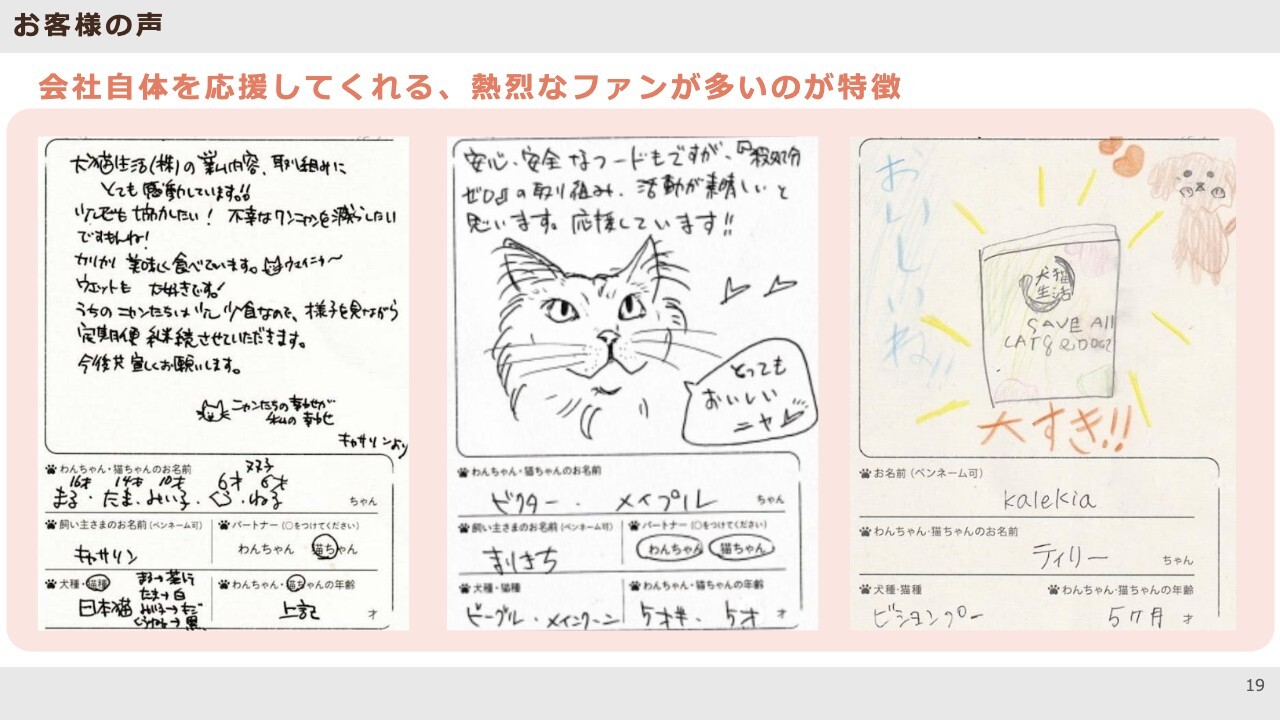 お客様の声
会社自体を応援してくれる、熱烈なファンが多いのが特徴
犬猫生活(株)の業務内容、取り組みに
とても感動しています!!
少しでも協力したい! 不幸なワンニャンを減らしたい
ですもんね!
カリカリ 美味しく食べています。
ウエットも 大好きです!
うちのニャンたちは少し少食なので、様子を見ながら
定期便 継続させていただきます。
今後共宜しくお願いします。
ニャンたちの幸せが
私の幸せ
キャサリンより
わんちゃん・猫ちゃんのお名前
16才 14才 10才 6才 6才
まる・たま・みい子・くう・ねる
ちゃん
飼い主さまのお名前(ペンネーム可)
キャサリン
パートナー(○をつけてください)
わんちゃん 猫ちゃん
犬種・猫種
日本猫
まる→茶トラ
たま→白
わんちゃん・猫ちゃんの年齢
上記
才
安心・安全なフードもですが、『殺処分
ゼロ』の取り組み、活動が素晴しいと
思います。応援しています!!
とっても
おいしい
ニャ
わんちゃん・猫ちゃんのお名前
ビクター・メイプル
ちゃん
飼い主さまのお名前(ペンネーム可)
まりきち
パートナー(○をつけてください)
わんちゃん 猫ちゃん
犬種・猫種
ビーグル・メインクーン
わんちゃん・猫ちゃんの年齢
5才半・5才
才
おいしいね!!
犬猫
生活
SAVE All
CATS & DOGS
大すき!!
お名前(ペンネーム可)
kalekia
わんちゃん・猫ちゃんのお名前
ティリー
ちゃん
犬種・猫種
ビションプー
わんちゃん・猫ちゃんの年齢
5ヶ月
才
19